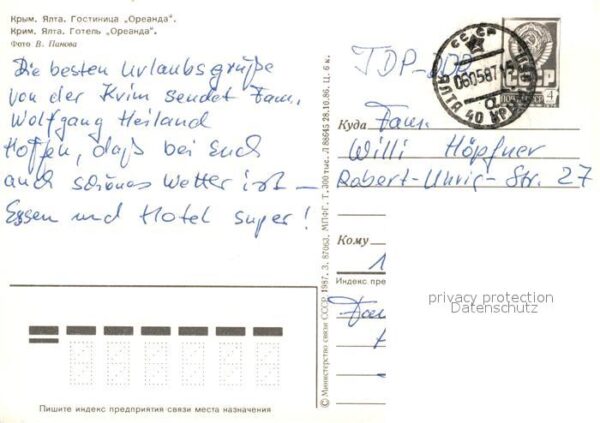 Крым. Ялта. Гостиница „Ореанда“.
Крим. Ялта. Готель „Ореанда“.
Фото В. Панова
Die besten Urlaubsgrüße
von der Krim sendet Fam.
Wolfgang Heiland
Hoffen, daß bei Euch
auch schönes Wetter ist –
Essen und Hotel super!
© Министерство связи СССР. 1987. З. 87063. МПФГ. Т. 300 тыс. Л 88645 28.10.86. Ц. 6 к.
СССР
060587
ЯЛТА
СССР
ПОЧТА
4
Куда Fam.
Willi Höpfner
Robert-Uhrig-Str. 27
Кому
1
Индекс пре
Fam
privacy protection
Datenschutz
Пишите индекс предприятия связи места назначения